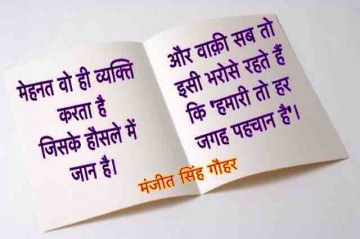 मेहनत वो ही व्यक्ति
करता है
जिसके हौसले में
जान है।
और वाक़ी सब तो
इसी भरोसे रहते हैं
कि "हमारी तो हर
जगह पहचान है"।
मंजीत सिंह गौहर